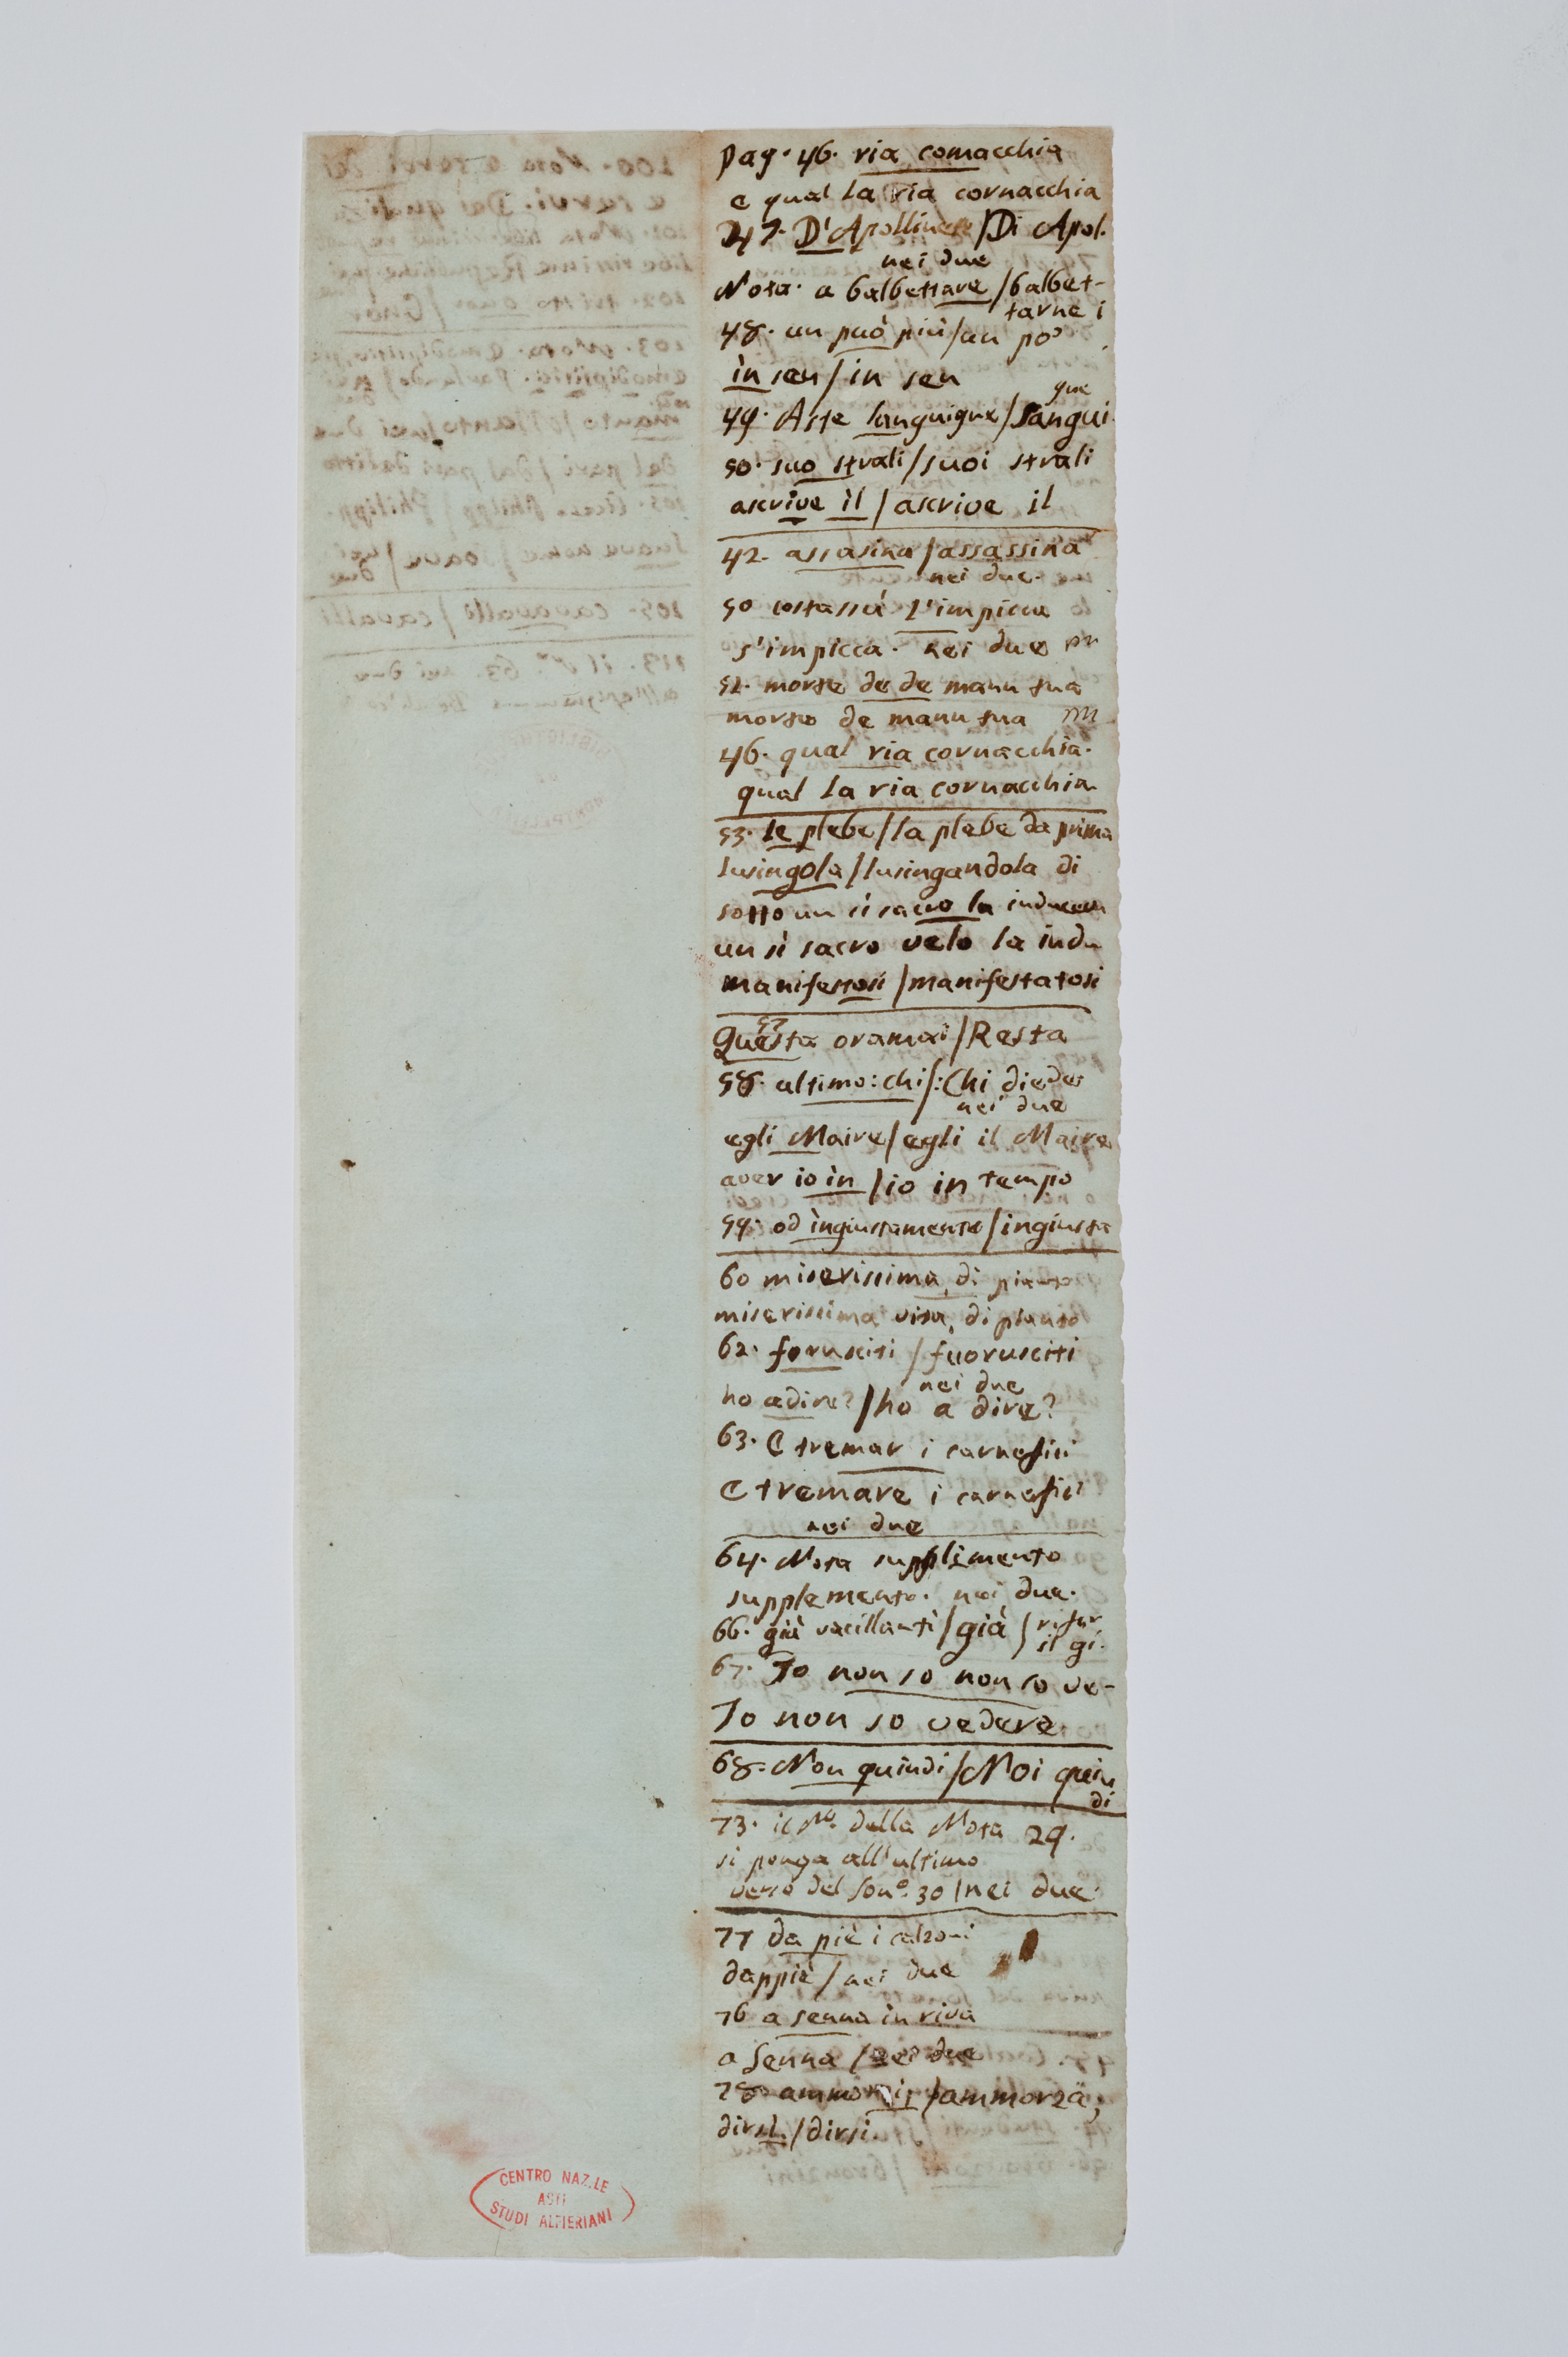 Pag. 46. ria cornacchia
e qual la ria cornacchia
47. D'Apollinere / Di Apol.
nei due
Nota. a balbettare / balbet-
tarne i
48. un può più / un po'
ìn sen / in sen
que
49. Aste languigne / Sangui
50. suo strali / suoi strali
ascrive ìl / ascrive il
42. assasina / assassina
nei due.
50 costassù L'impicca
s'impicca. nei due
52. morse de de manu sua
morseo de manu sua
46. qual ria cornacchia.
qual la ria cornacchia
53. le plebe / la plebe da prima
lusingola / lusingandola di
sotto un sì sacro la inducea
un sì sacro velo la indu
manifestosi / manifestatosi
57
Questa oramai / Resta
58. altimo: chi / : Chi diede
nei due
egli Maire / egli il Maire
aver io ìn / io in tempo
59. od ìngiustamente / ingiusta
60 miserissima, di pianto
miserissima vista, di pianto
62. forusciti / fuorusciti
nei due
ho adire? / ho a dire?
63. E tremar i carnefici
E tremare i carnefici
nei due
64. Nota supplimento
supplemento. nei due.
66. già vacillanti / già /
il gi.
67. Io non so non so ve-
Io non so vedere
68. Non quindi / Noi quin
di
73. il No. della Nota 29.
si ponga all'ultimo
verso del Sono. 30 / nei due.
77 da piè i calzoni
dappiè / nei due
76 a senna in riva
a Senna / nei due
78 / ammorza;
dirsì / dirsi.
CENTRO NAZ.LE
ASTI
STUDI ALFIERIANI